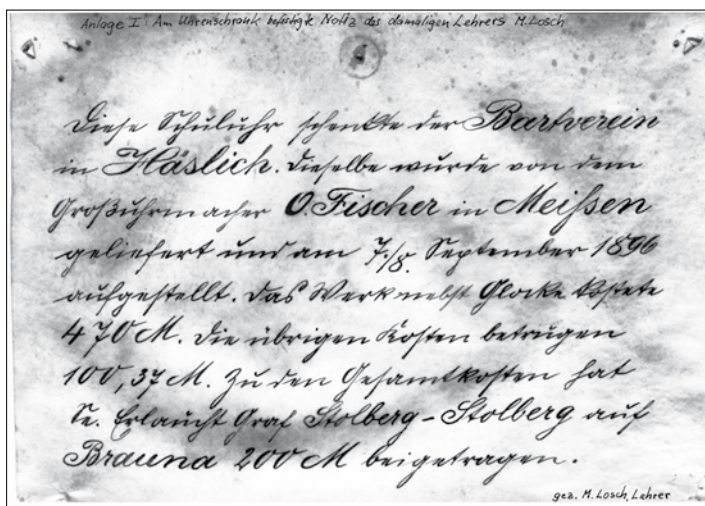 Anlage I: Am Uhrenschrank befestigte Notiz des damaligen Lehrers M. Losch
Diese Schuluhr schenkte der Bartverein
in Häslich. Dieselbe wurde von dem
Großuhrmacher O. Fischer in Meißen
geliefert und am 7./8. September 1896
aufgestellt. Das Werk nebst Glocke kostete
470 M. Die übrigen Kosten betrugen
100,37 M. Zu den Gesamtkosten hat
Se. Erlaucht Graf Stolberg-Stolberg auf
Brauna 200 M beigetragen.
gez. M. Losch, Lehrer